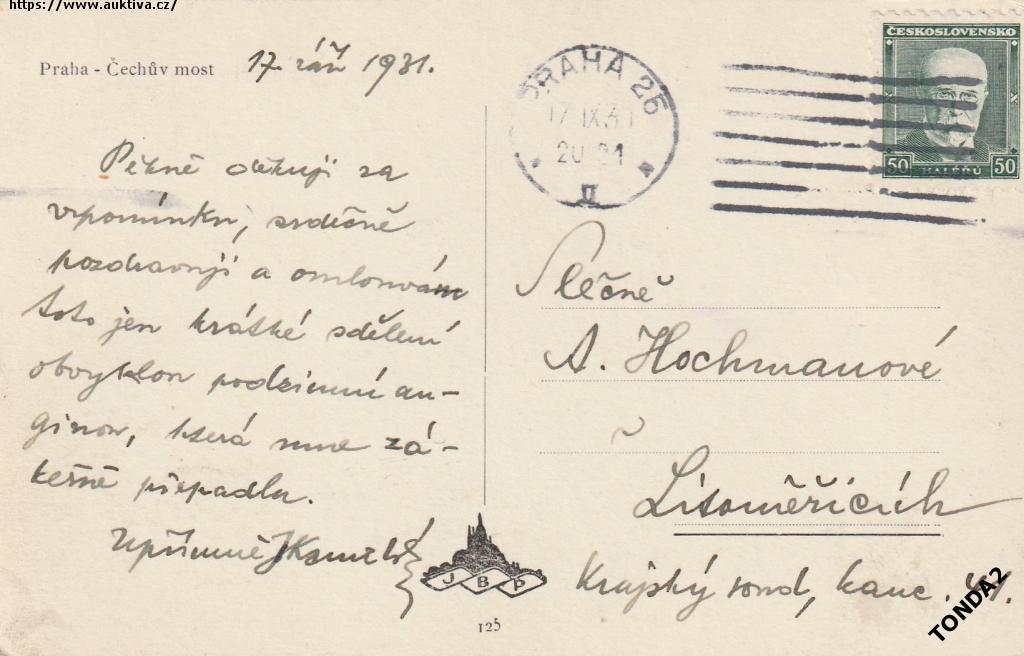 https://www.auktiva.cz/
Praha - Čechův most 17. září 1931.
Pěkně děkuji za
vzpomínku, srdečně
pozdravuji a omlouvám
toto jen krátké sdělení
obvyklou podzimní an-
ginou, která mne zá-
keřně přepadla.
Upřímně
PRAHA 25
17 IX 31
20 21
II
ČESKOSLOVENSKO
50 HALÉŘŮ 50
Slečně
A. Hochmanové
v
Litoměřicích
Krajský soud, kanc.
JBP
125
TONDA2